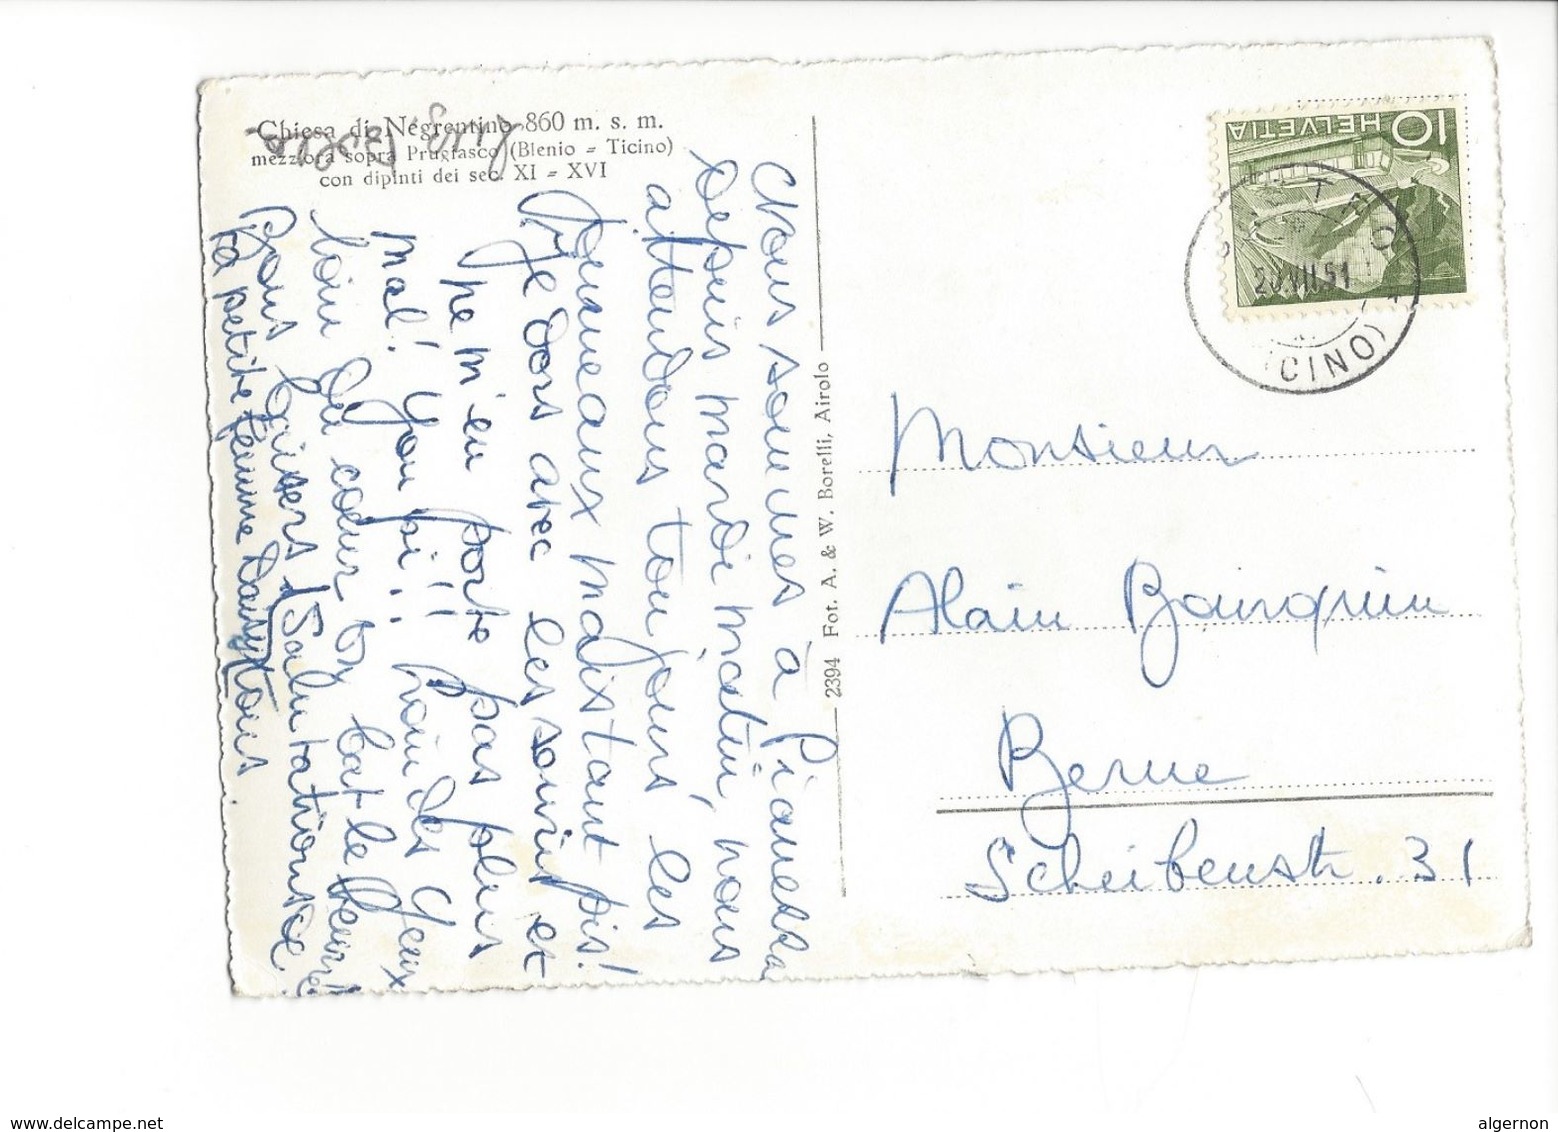 Chiesa di Negrentino 860 m. s. m.
mezz'ora sopra Prugiasco (Blenio = Ticino)
con dipinti dei sec. XI = XVI
Nous sommes à Pianezza
depuis mardi matin, nous
attendons toujours les
jumeaux mais tant pis!
Je dors avec les souris et
ne m'en porte pas plus
mal! Youpi!! Loin des yeux
loin du cœur
Bons baisers Salutations
Ta petite femme Daisy
2394 Fot. A. & W. Borelli, Airolo
HELVETIA 10
20.VII.51
Monsieur
Alain Bourquin
Berne
Scheibenstr. 31
www.delcampe.net
algernon